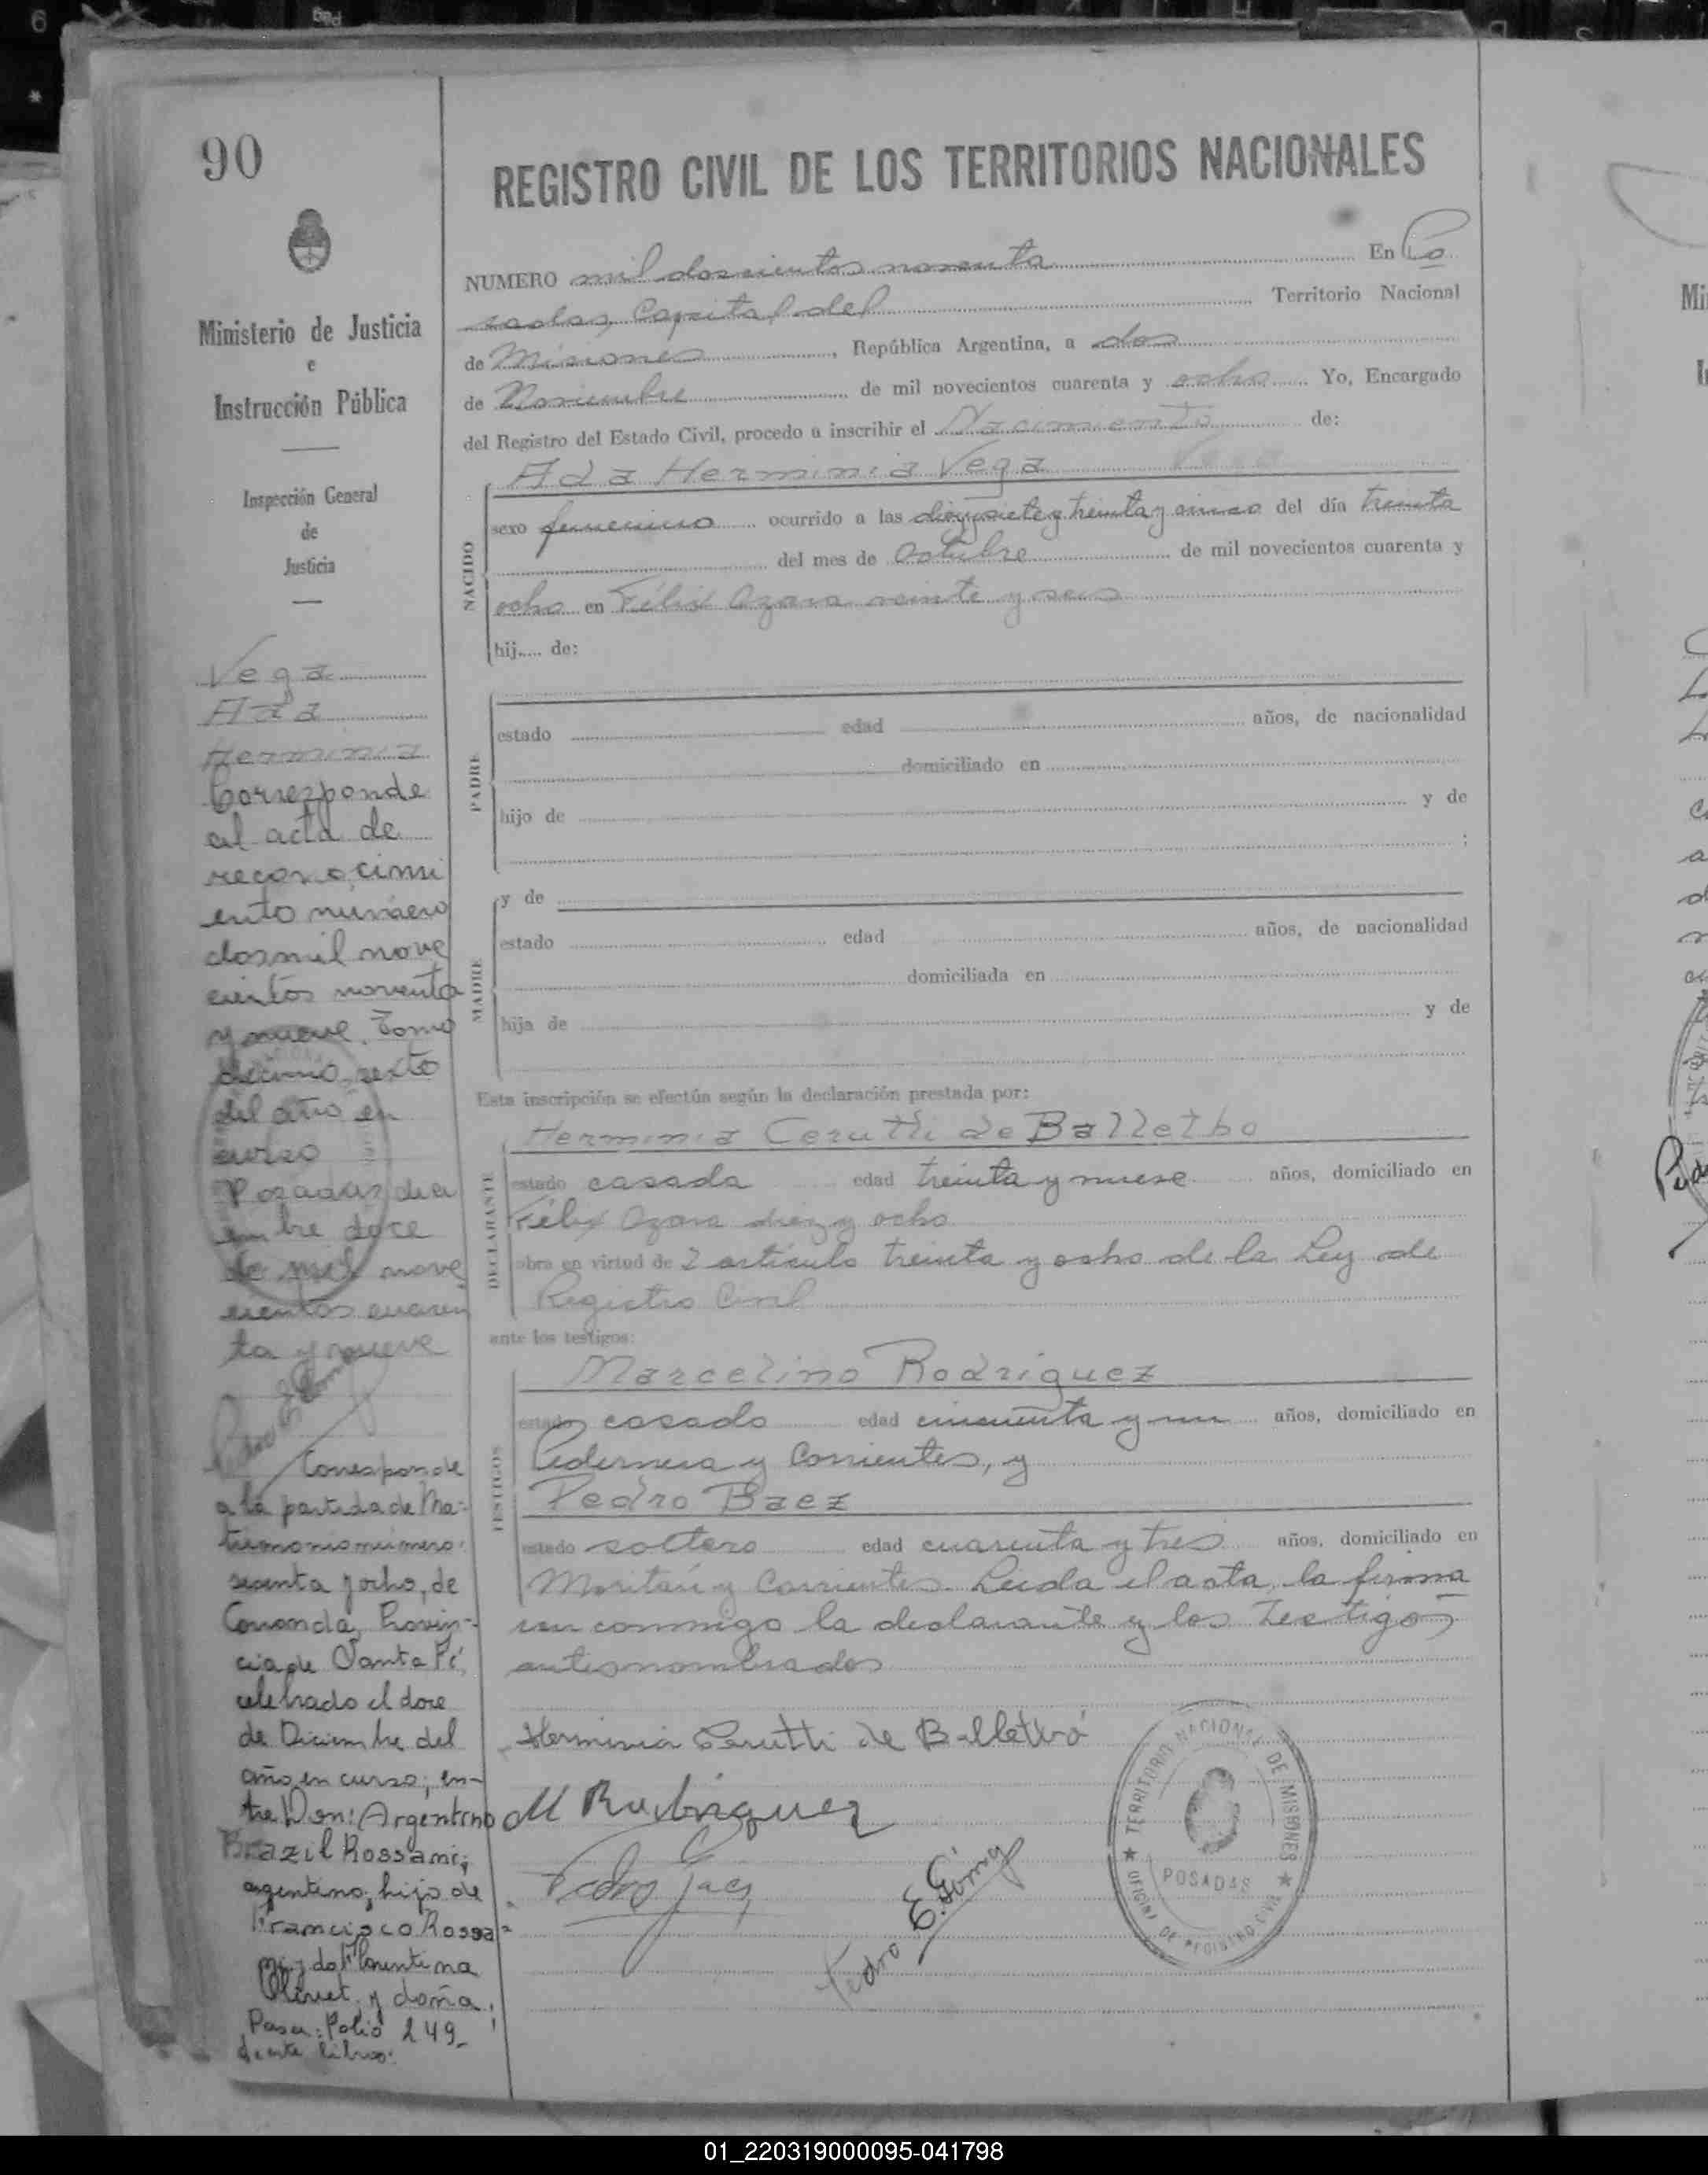 90
Ministerio de Justicia
e
Instrucción Pública
Inspección General
de
Justicia
Vega
Ada
Herminia
Corresponde
al acta de
reconocimi
ento número
dosmil nove
cientos noventa
y nueve. Tomo
décimo sexto
del año en
curso
Posadas dici
embre doce
de mil nove
cientos cuaren
ta y nueve
Corresponde
a la partida de Ma-
trimonio número:
sesenta y ocho, de
Coronda, Provin-
cia de Santa Fé,
celebrado el doce
de Diciembre del
año en curso; en-
tre Don: Argentino
Brazil Rossami;
argentino, hijo de
Francisco Rossa-
mi y da Florentina
y doña,
Pasa: Folio 249-
de este libro.
REGISTRO CIVIL DE LOS TERRITORIOS NACIONALES
NUMERO mil doscientos noventa En Po
sadas, Capital del Territorio Nacional
de Misiones, República Argentina, a dos
de Noviembre de mil novecientos cuarenta y ocho Yo, Encargado
del Registro del Estado Civil, procedo a inscribir el Nacimiento de:
Ada Herminia Vega
NACIDO
sexo femenino ocurrido a las diezysiete y treinta y cinco del día treinta
del mes de Octubre de mil novecientos cuarenta y
ocho en Félix Azara veinte y seis
hij de:
PADRE
estado edad años, de nacionalidad
domiciliado en
hijo de y de
;
MADRE
y de
estado edad años, de nacionalidad
domiciliada en
hija de y de
Esta inscripción se efectúa según la declaración prestada por:
DECLARANTE
Herminia Cerutti de Balletbo
estado casada edad treinta y nueve años, domiciliado en
Félix Azara diez y ocho
obra en virtud de 2 artículo treinta y ocho de la Ley de
Registro Civil
ante los testigos:
TESTIGOS
Marcelino Rodriguez
estado casado edad cincuenta y un años, domiciliado en
Pedernera y Corrientes, y
Pedro Baez
estado soltero edad cuarenta y tres años, domiciliado en
y Corrientes. Leida el acta, la firma
ron conmigo la declarante y los Testigos
antesnombrados
Herminia Cerutti de Balletbó
M Rodriguez
Pedro Baez
Pedro E. Gómez
TERRITORIO NACIONAL DE MISIONES
POSADAS
OFICINA DE REGISTRO CIVIL
01_220319000095-041798